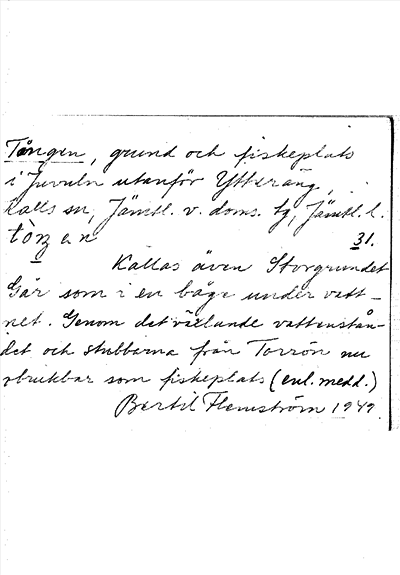 Tången, grund och fiskeplats
i Juvuln utanför Ytteräng,
Kalls sn, Jämtl. v. doms. tg, Jämtl. l.
tòŋen 31.
Kallas även Storgrundet
Går som i en båge under vatt-
net. Genom det växlande vattenstån-
det och stubbarna från Torrön nu
obrukbar som fiskeplats (enl. medd.)
Bertil Flemström 1949.